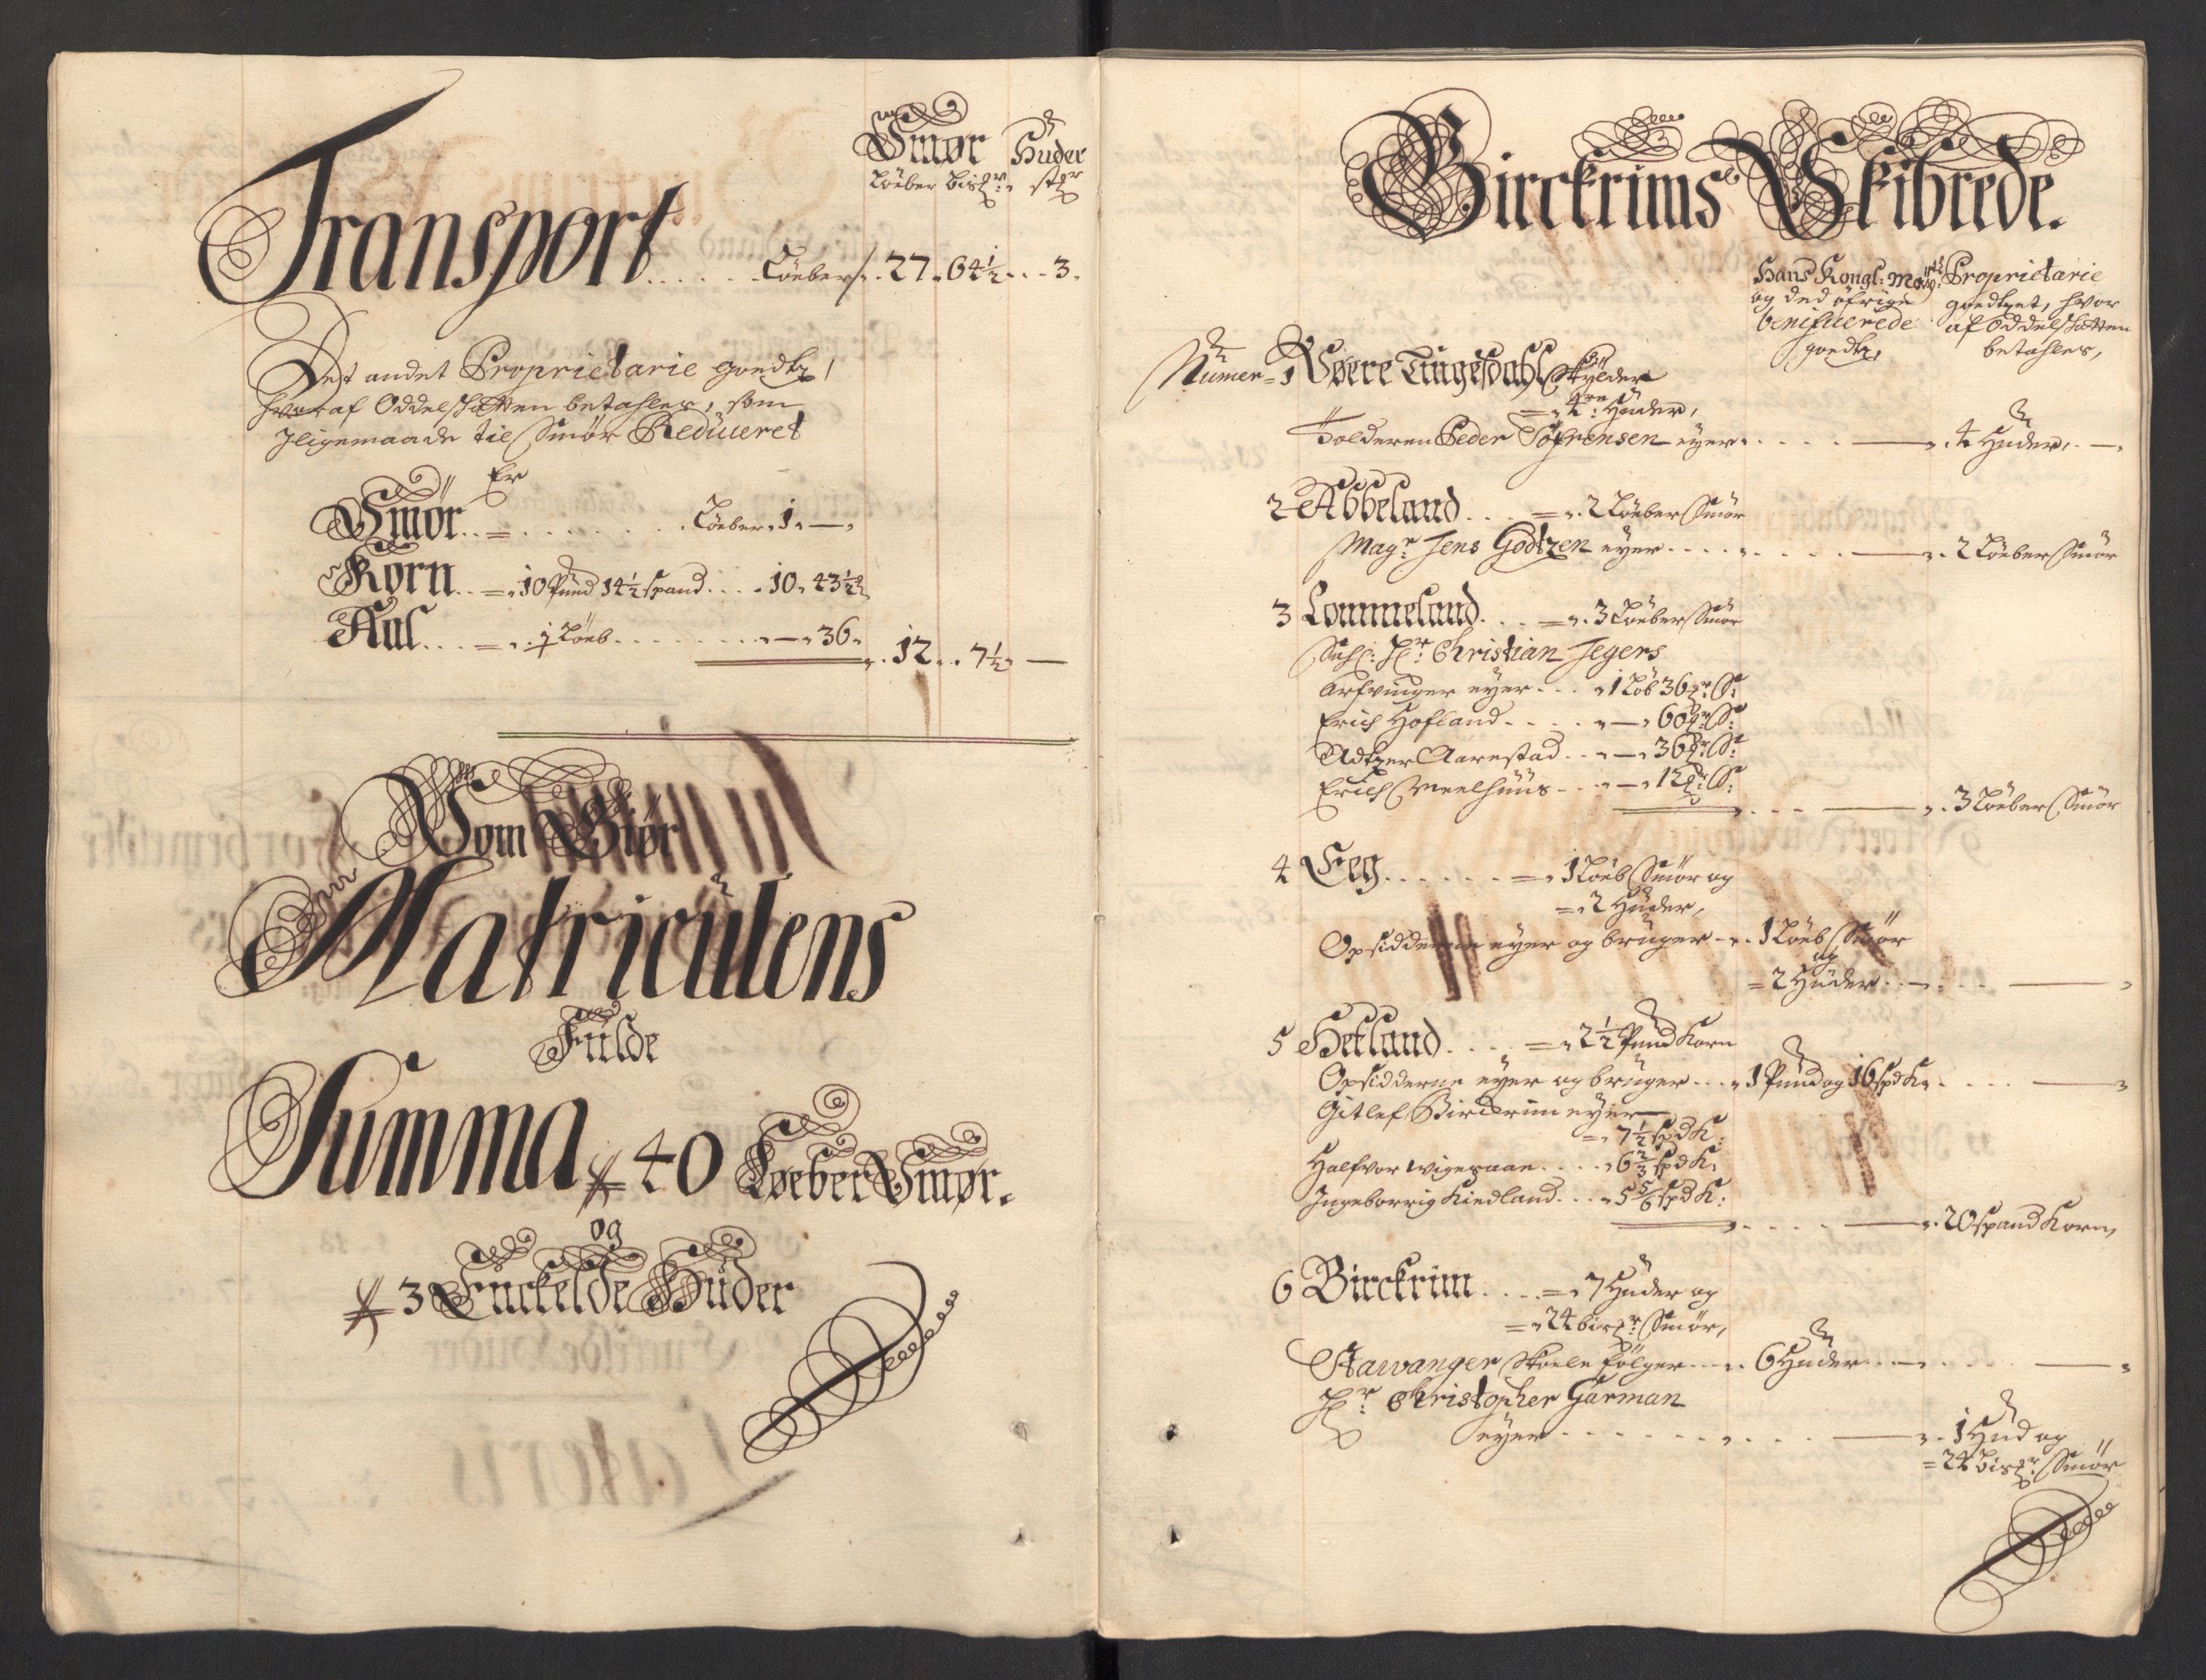 Smør Huder
Löeber bis℔r: st℔r
Transport ..... Löeber 27. 64½ ... 3.
Det andet Proprietarie goedtz,
hvoraf Oddelskatten betahles, som
Iligemaade til Smør Reduceret
Er
Smør .. = ...... Löeber. 1. —,
Korn .. = . 10 Pund 14½ spand .... 10. 43½
Aal ... = .. ½ Löeb ....... — 36.
12 .. 7½. —
Som Giør
Matriculens
Fulde
Summa 40 Løeber Smør.
og
3 Enckelde Huder
Birckrims Skibrede.
Hans Kongl: Mayts Proprietarie
og ded öfrige goedtzet, hvor
benificerede af Oddelskatten
goedtz, betahles,
Numer = 1 Røere Tingesdahl Skylder
= . 4: Huder,
Tolderen Peder Söfrensen eyer ..... — . 4 Huder, —.
2 Abbeland .... = . 2 Löeber Smör
Magr: Jens Godtzen eyer ........ — . 2 Löeber Smör
3 Lommeland .... = . 3 Löeber Smör
Sahl: Hr: Christian Jegers
Arfvinger eyer ... 1 Löb 36℔r: S:
Erich Hofland .... — 60℔r: S:
Adtzer Aarestad .. — 36℔r: S:
Erich Meelhuus ... — 12℔r: S:
.... — . 3 Löeber Smör
4 Eeg ...... = . 1 Löeb Smör og
= . 2 Huder,
Opsidderne eyer og bruger - .. 1 Löeb Smör
og
= 2 Huder .. — ... —
5 Hetland .... = . 2½ Pund Korn
Opsidderne eyer og bruger ... 1 Pund og 16 spd K. .... —
Gitlef Birckrim eyer
= . 7½ spd K:
Halfvor wigesaae .... 6⅔ spd K.
Ingeborrig Kiedland ... 5⅚ spd K:
.... — . 20 spand Korn,
6 Birckrim .... = . 7 Huder og
= . 24 bis℔r: Smör,
Stawanger Skoele fölger ... 6 Huder .. — ... —
Hr: Christopher Garman
eyer .......... — . 1 Hud og
= 24 bis℔r: Smör